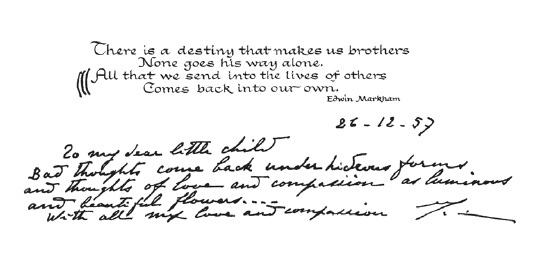 There is a destiny that makes us brothers
None goes his way alone.
All that we send into the lives of others
Comes back into our own.
Edwin Markham
26-12-57
To my dear little child
Bad thoughts come back under hideous forms
and thoughts of love and compassion as luminous
and beautiful flowers....
With all my love and compassion